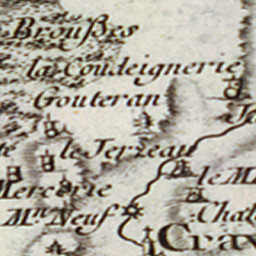 Broußes
la Coudeignerie
Gouteran
le Terzeau
le M
Mercerie
Mⁱⁿ Neuf
Crav